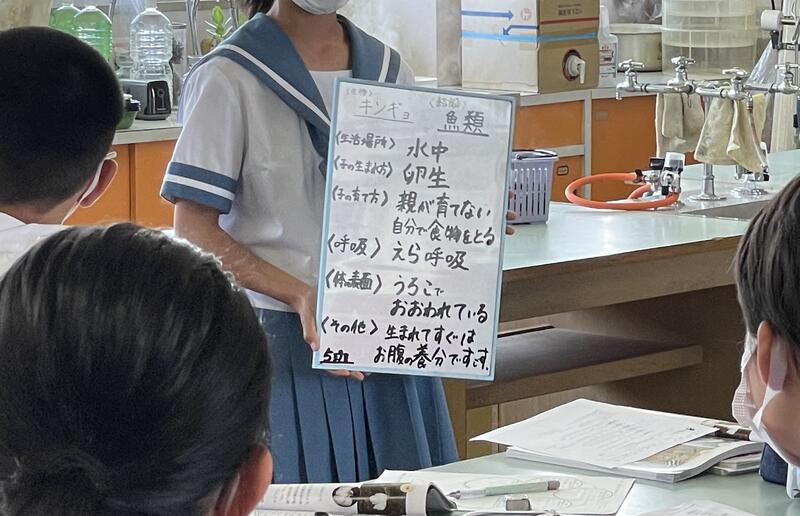 〈生物〉 キンギョ 〈結論〉 魚類
〈生活場所〉 水中
〈子の生まれ方〉 卵生
〈子の育て方〉 親が育てない
自分で食物をとる
〈呼吸〉 えら呼吸
〈体の表面〉 うろこで
おおわれている
〈その他〉 生まれてすぐは
5班 お腹の養分ですごす。